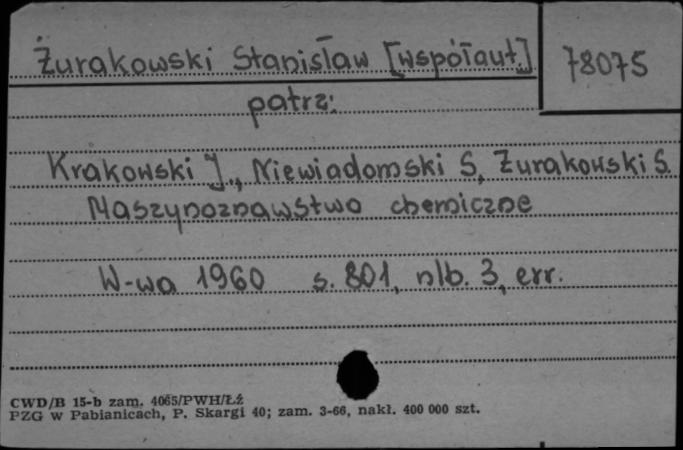 Żurakowski Stanisław [współaut.] 78075
patrz:
Krakowski J., Niewiadomski S, Żurakowski S.
Maszynoznawstwo chemiczne
W-wa 1960 s. 801, nlb. 3, err.
CWD/B 15-b zam. 4065/PWH/Łż
PZG w Pabianicach, P. Skargi 40; zam. 3-66, nakł. 400 000 szt.